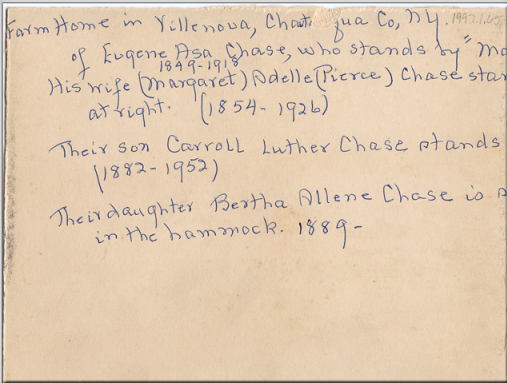 Farm Home in Villenova, Chaut qua Co, N.Y. 1997.1.
of Eugene Asa Chase, who stands by "Mo
1849-1918
His wife (Margaret) Adelle (Pierce) Chase stan
at right. (1854-1926)
Their son Carroll Luther Chase stands
(1882-1952)
Their daughter Bertha Allene Chase is
in the hammock. 1889-